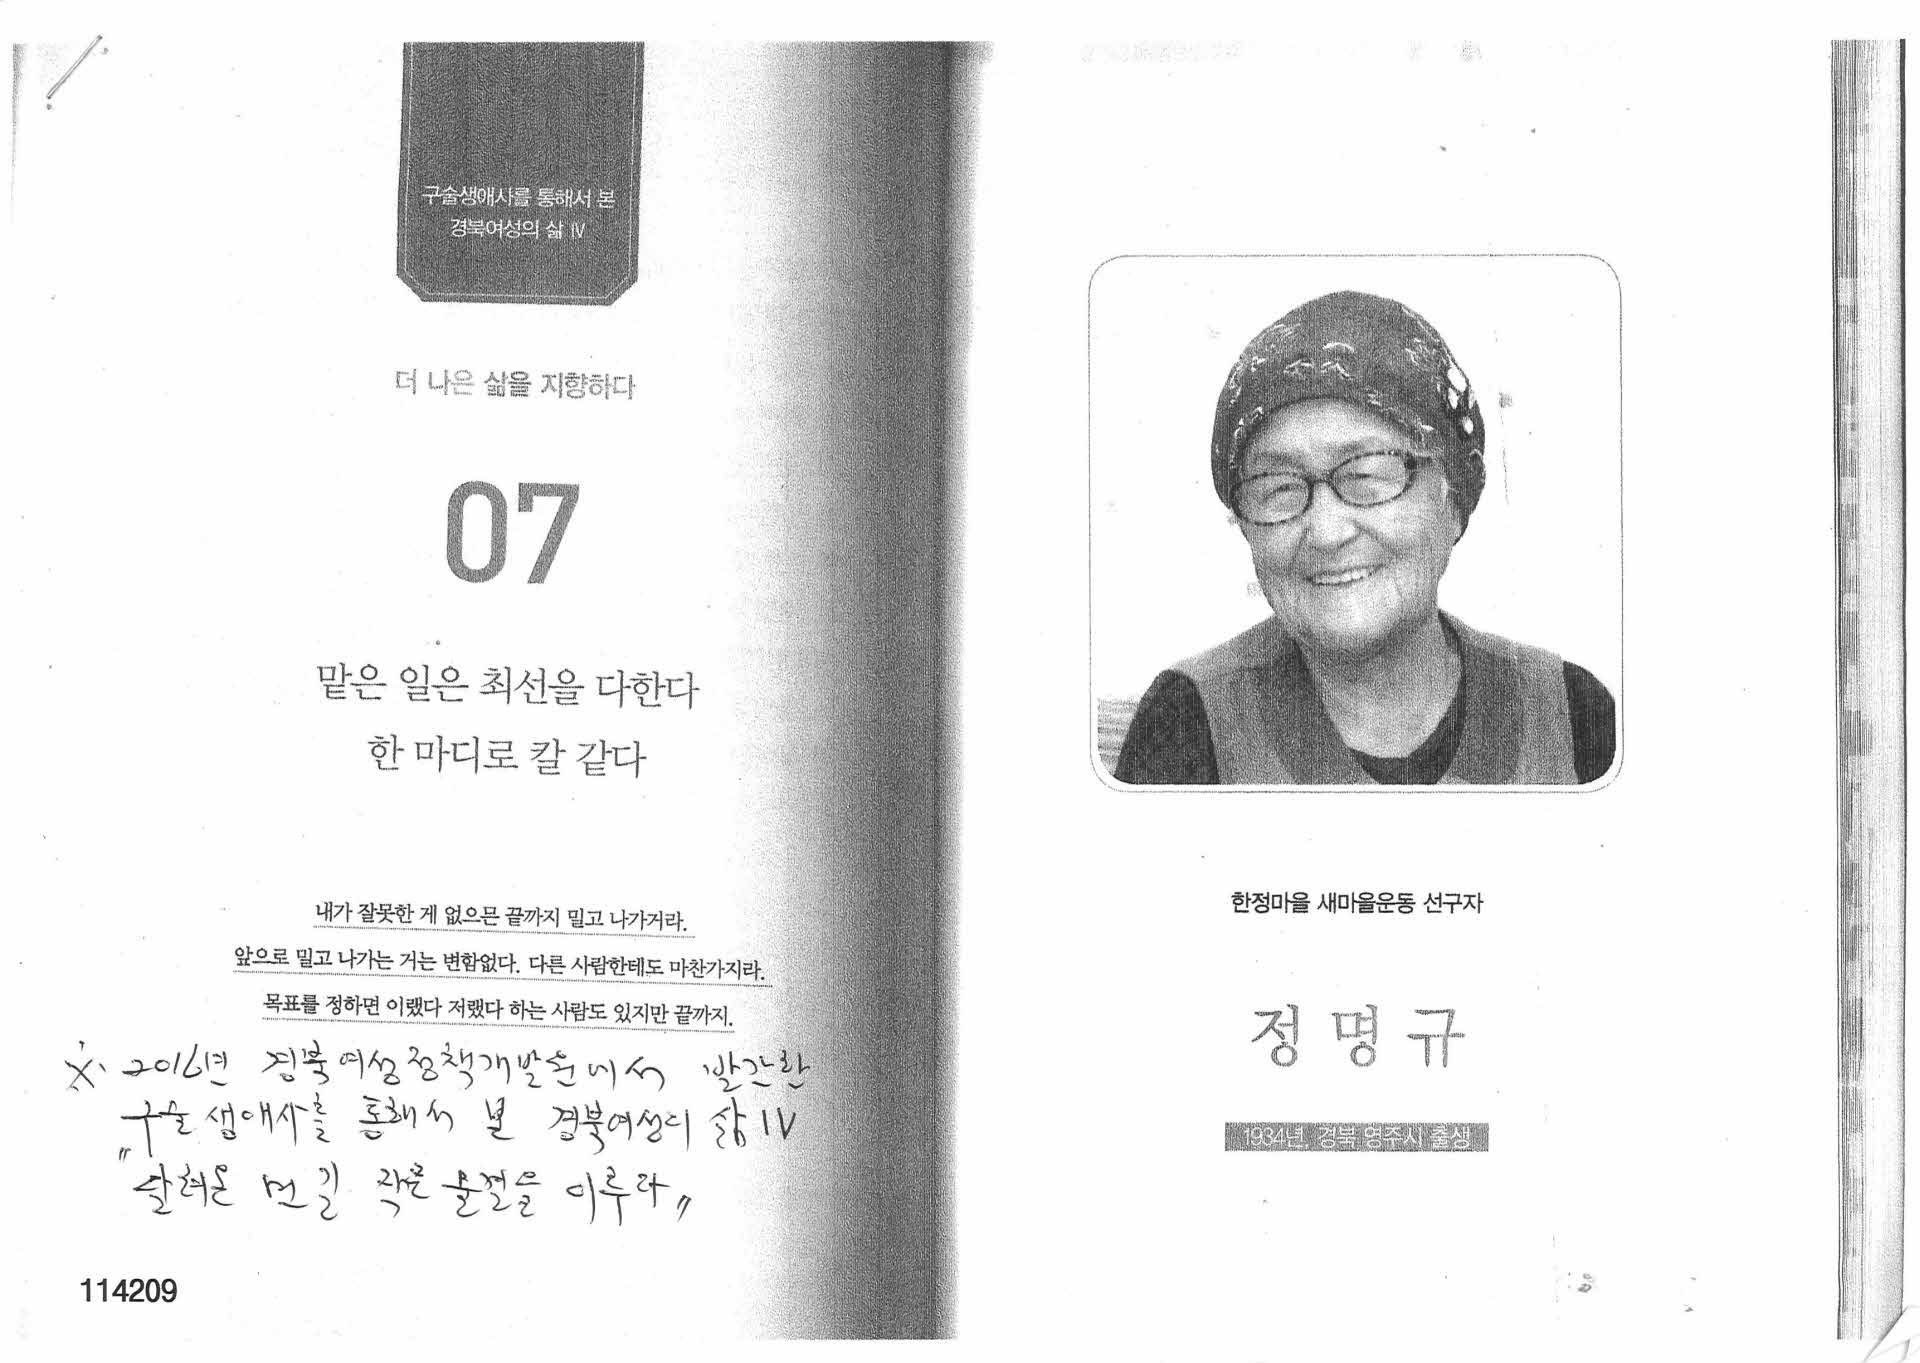 구술생애사를 통해서 본
경북여성의 삶 Ⅳ
더 나은 삶을 지향하다
07
맡은 일은 최선을 다한다
한 마디로 칼 같다
내가 잘못한 게 없으믄 끝까지 밀고 나가거라.
앞으로 밀고 나가는 거는 변함없다. 다른 사람한테도 마찬가지라.
목표를 정하면 이랬다 저랬다 하는 사람도 있지만 끝까지.
※. 2016년 경북여성정책개발원에서 발간한
구술생애사를 통해서 본 경북여성의 삶 IV
"달려온 먼 길 작은 물결을 이루다"
114209
한정마을 새마을운동 선구자
정명규
1934년, 경북 영주시 출생